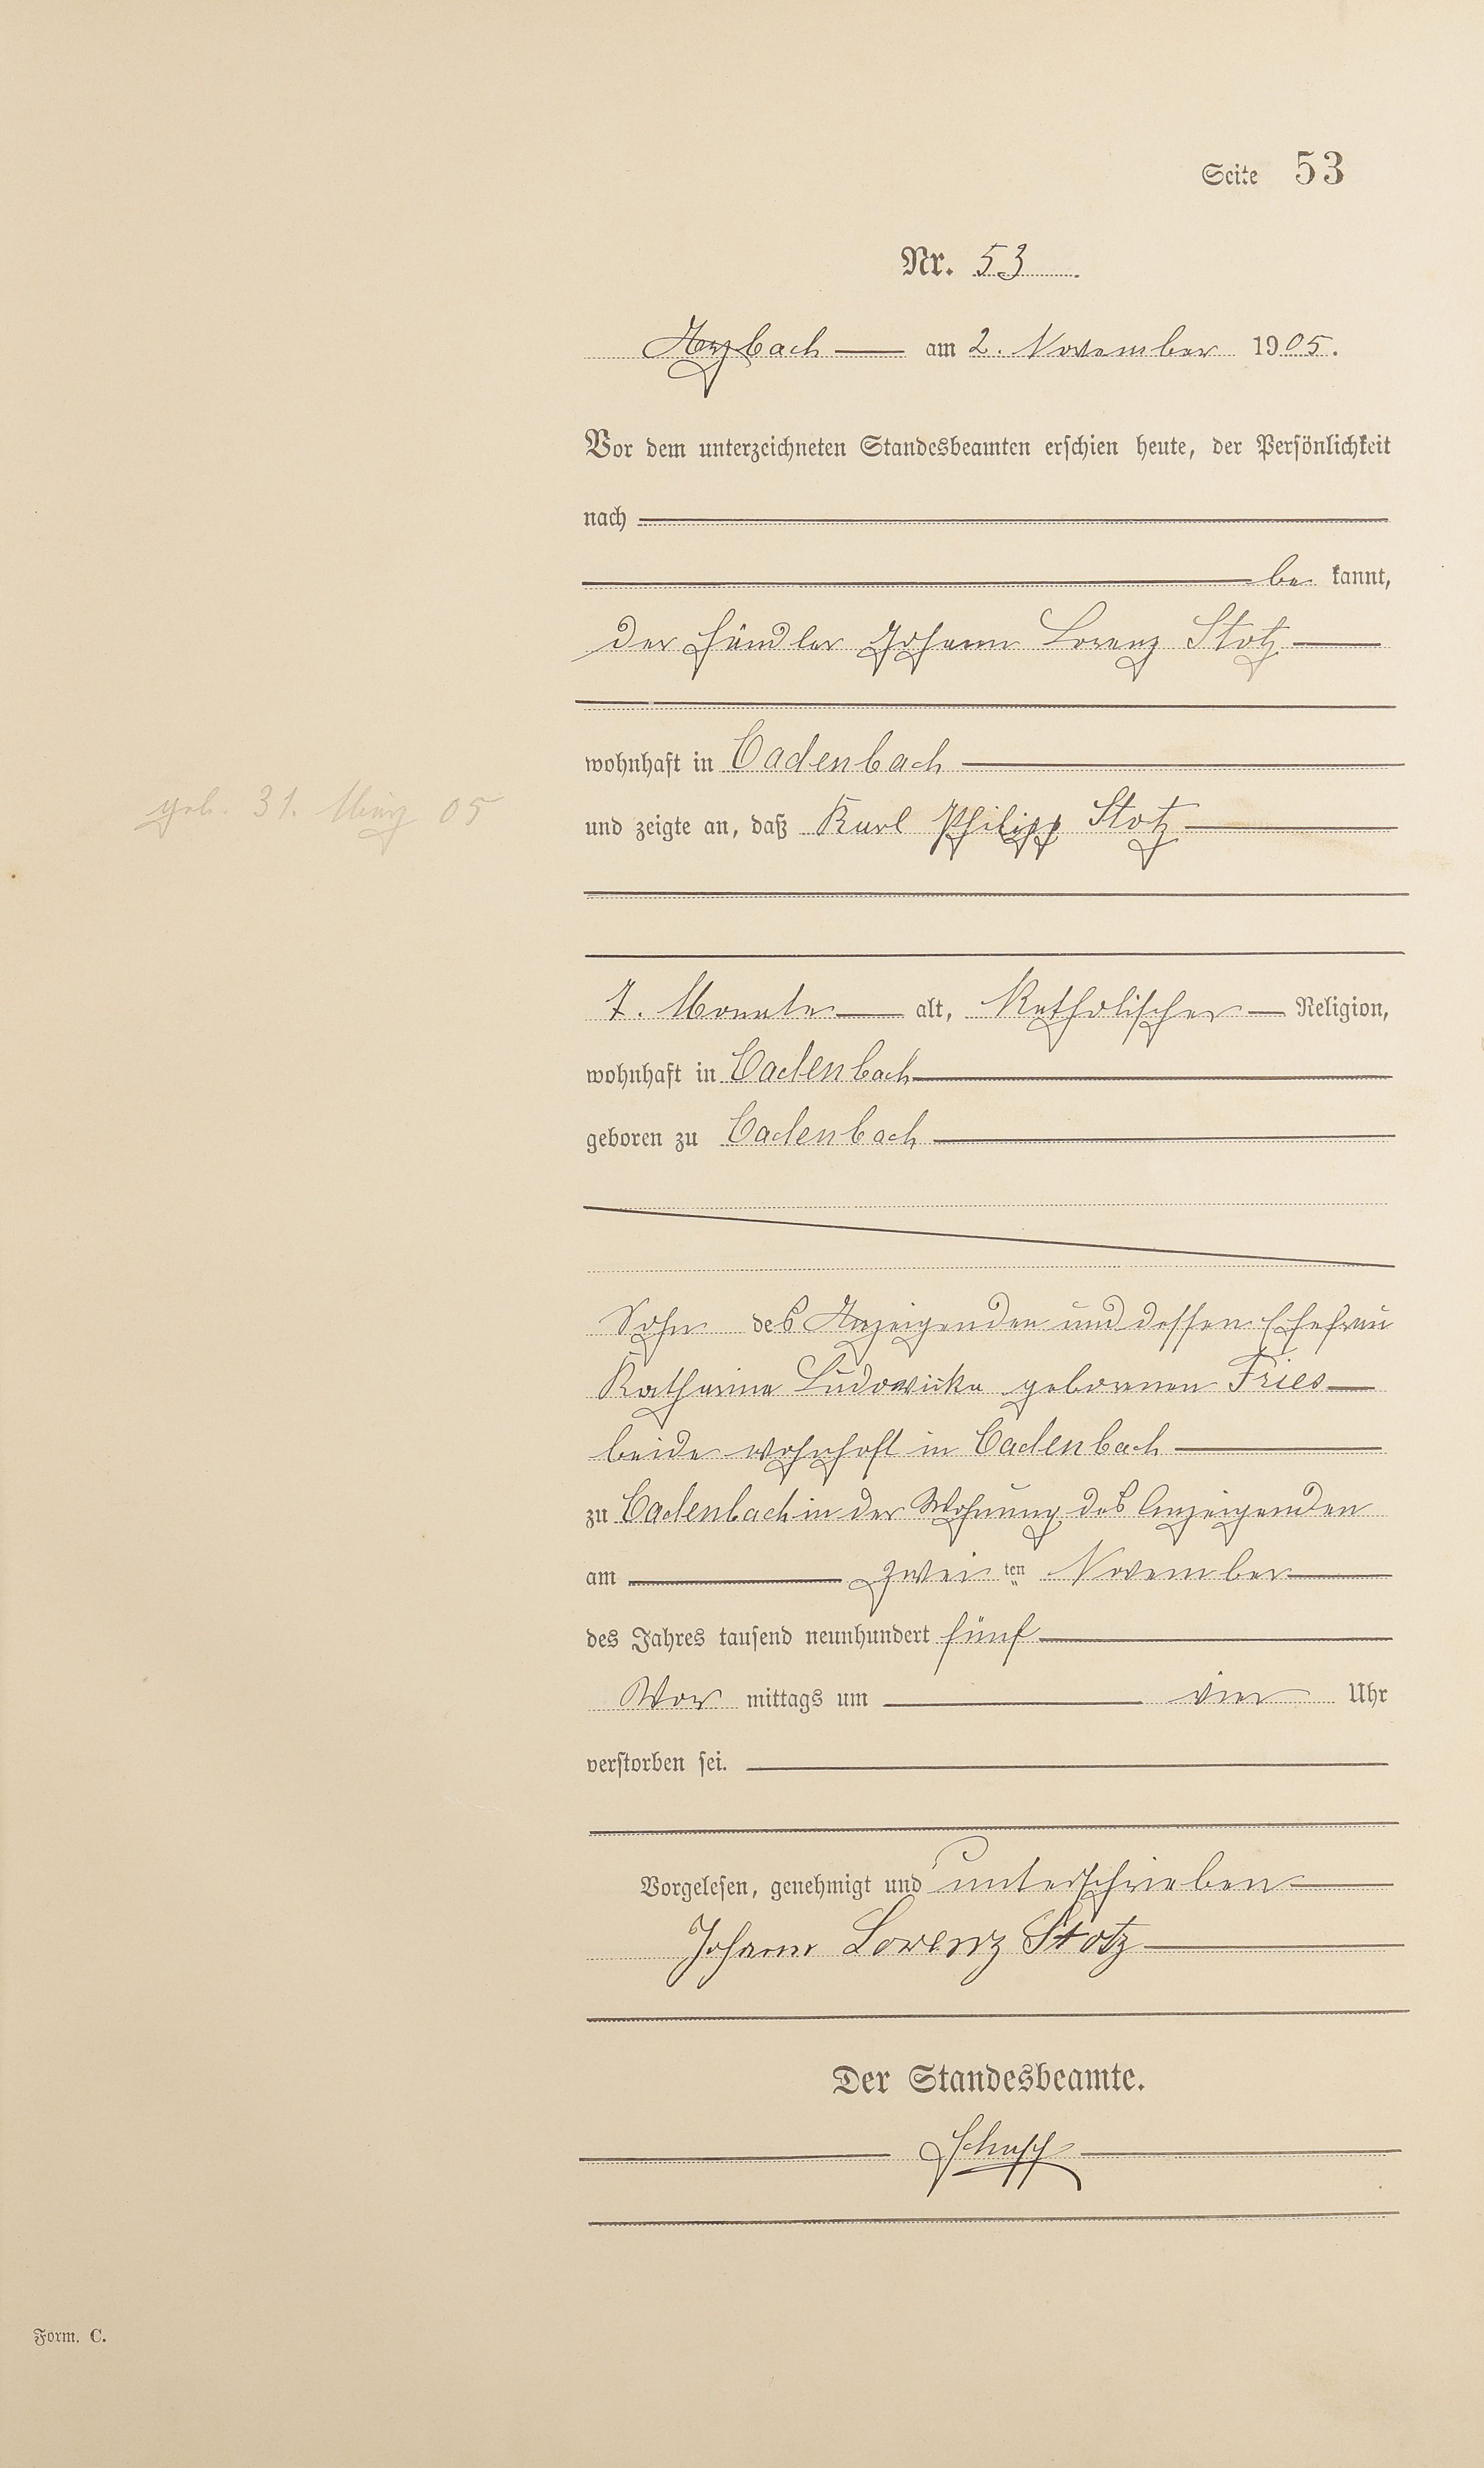 Seite 53
Nr. 53
Arzbach am 2. November 1905.
Vor dem unterzeichneten Standesbeamten erschien heute, der Persönlichkeit
nach
be kannt,
der Händler Johann Lorenz Stotz
wohnhaft in Cadenbach
geb. 31. März 05
und zeigte an, daß Karl Philipp Stotz
7. Monate alt, Katholischer Religion,
wohnhaft in Cadenbach
geboren zu Cadenbach
Sohn des Anzeigenden und dessen Ehefrau
Katharina Ludowicka geborenen Fries
beide wohnhaft in Cadenbach
zu Cadenbach in der Wohnung des Anzeigenden
am zwei ten November
des Jahres tausend neunhundert fünf
Vor mittags um vier Uhr
verstorben sei.
Vorgelesen, genehmigt und unterschrieben
Johann Lorenz Stotz
Der Standesbeamte.
Form. C.